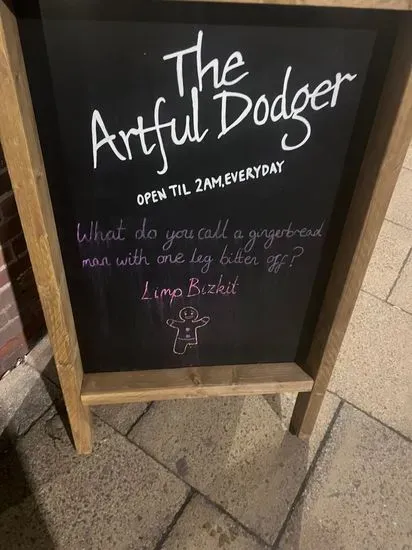 The
Artful Dodger
OPEN TIL 2AM, EVERYDAY
What do you call a gingerbread
man with one leg bitten off?
Limp Bizkit